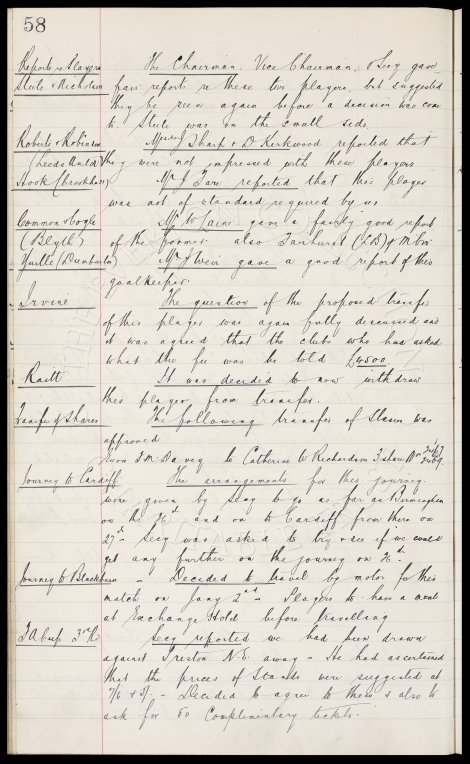 58
Reports re Players The Chairman, Vice Chairman, & Secy gave
Steele & Nicholson fair reports re these two players, but suggested
they be seen again before a decision was come
to. Steele was on the small side.
Roberts & Robinson Messrs J Sharp & D Kirkwood reported that
(Leeds Autd) they were not impressed with these players
Hook (Crookhall) Mr J reported that this player
was not of standard required by us
Common & Mr W gave a fairly good report
(Blyth) of the former: also
Yuille (Dumbarton) Mr J Weir gave a good report of this
goalkeeper.
Irvine The question of the proposed transfer
of this player was again fully discussed and
it was agreed that the clubs who had asked
what the fee was be told £4500
Raitt It was decided to now withdraw
this player from transfer.
Transfer of Shares The following transfer of Shares was
approved
from J. M. Davey to Catherine W Richardson 3 shares
Journey to Cardiff The arrangements for this journey
were given by Secy to go as far as Birmingham
on the 26th and on to Cardiff from there on
27th - Secy was asked to try & see if we could
get any further on the journey on 26th.
Journey to Blackburn - Decided to travel by motor for this
match on Jany 2nd - Players to have a meal
at Exchange Hotel before travelling
F A Cup 3rd R Secy reported we had been drawn
against Preston N.E. away - He had ascertained
that the prices of Stands were suggested at
7/6 & 5/- - Decided to agree to these & also to
ask for 50 Complimentary tickets.